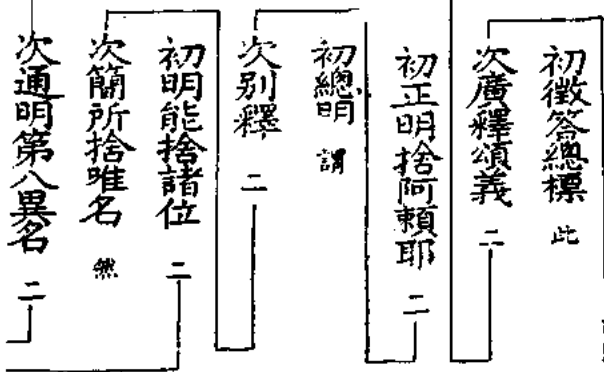 初徵答總標 此
次廣釋頌義 二
初正明捨阿賴耶 二
初總明 謂
次別釋 二
初明能捨諸位 二
次簡所捨唯名 然
次通明第八異名 二